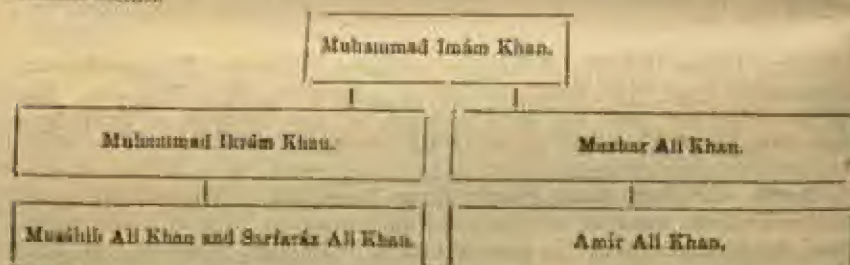 Muhammad Imám Khan.
Muhammad Ikrám Khan.
Mazhar Ali Khan.
Musáhib Ali Khan and Sarfaráz Ali Khan.
Amír Ali Khan.